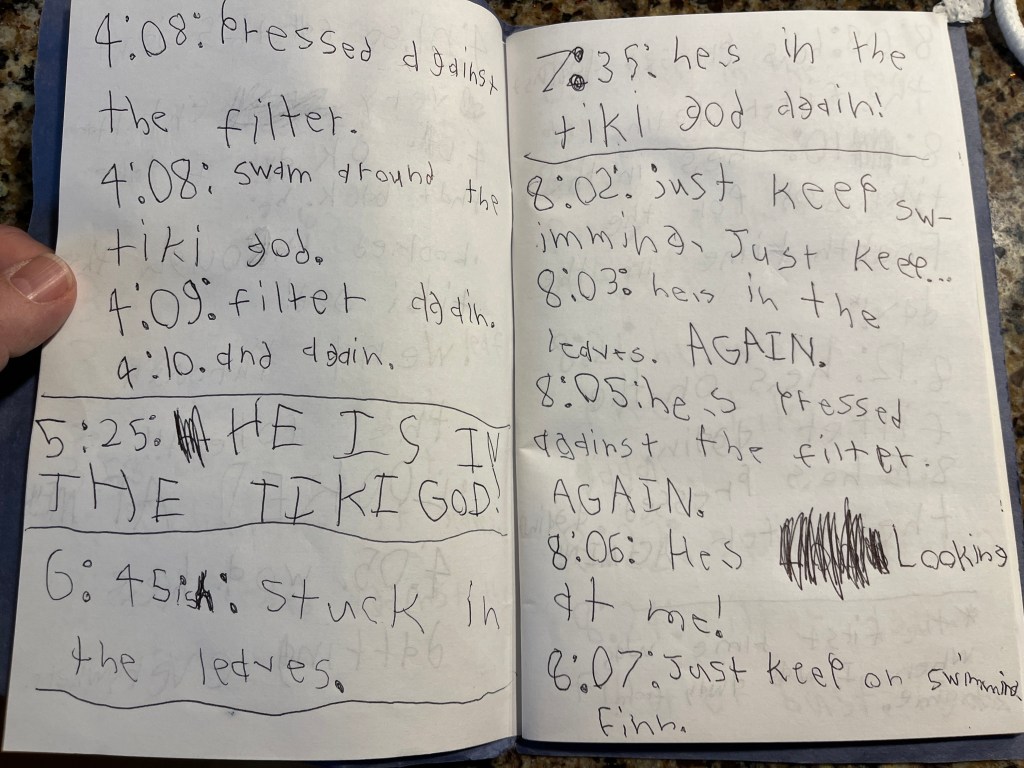 4:08: Pressed against
the filter.
4:08: swam around the
tiki god.
4:09: filter again.
4:10. and again.
5:25: HE IS IN
THE TIKI GOD!
6:45ish: stuck in
the leaves.
7:35: he.s in the
tiki god again!
8:02: just keep sw-
imming. Just keep...
8:03: he.s in the
leaves. AGAIN.
8:05: he.s pressed
against the filter.
AGAIN.
8:06: Hes Looking
at me!
8:07: Just keep on swimming
Finn.